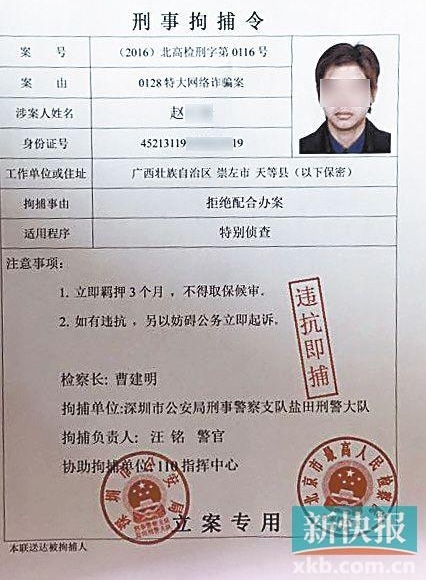 刑事拘捕令
案 号 （2016）北高检刑字第0116号
案 由 0128特大网络诈骗案
涉案人姓名 赵
身份证号 45213119 19
工作单位或住址 广西壮族自治区 崇左市 天等县（以下保密）
拘捕事由 拒绝配合办案
适用程序 特别侦查
注意事项：
1. 立即羁押3个月，不得取保候审.
2. 如有违抗，另以妨碍公务立即起诉.
违抗即捕
检察长: 曹建明
拘捕单位:深圳市公安局刑事警察支队盐田刑警大队
拘捕负责人： 汪 铭 警官
协助拘捕单位: 110指挥中心
深圳市公安局
刑事警察支队
北京市最高人民检察
立案专用
本联送达被拘捕人
新快报
xkb.com.cn